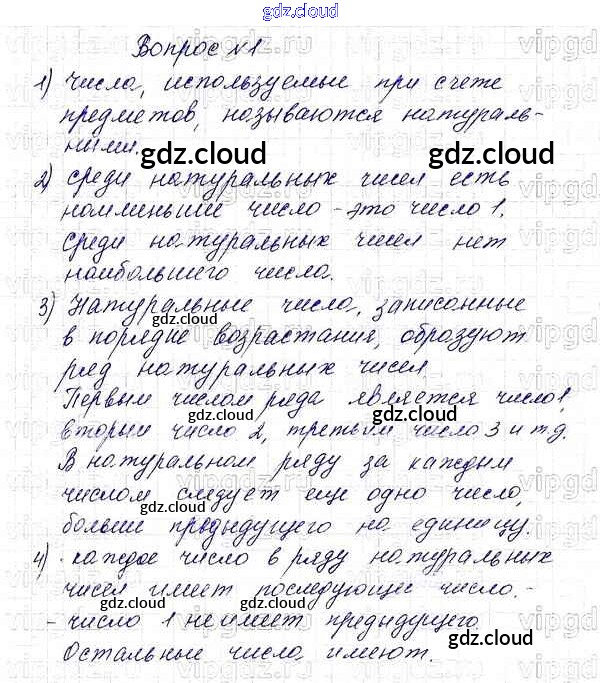 gdz.cloud
Вопрос №1
1) числа, используемые при счете
предметов, называются натураль-
ными.
2) среди натуральных чисел есть
наименьшее число - это число 1.
Среди натуральных чисел нет
наибольшего числа.
3) Натуральные числа, записанные
в порядке возрастания, образуют
ряд натуральных чисел.
Первым числом ряда является число 1,
вторым число 2, третьим число 3 и т.д.
В натуральном ряду за каждым
числом следует еще одно число,
больше предыдущего на единицу.
4) · каждое число в ряду натуральных
чисел имеет последующее число. -
- число 1 не имеет предыдущего.
Остальные числа имеют.